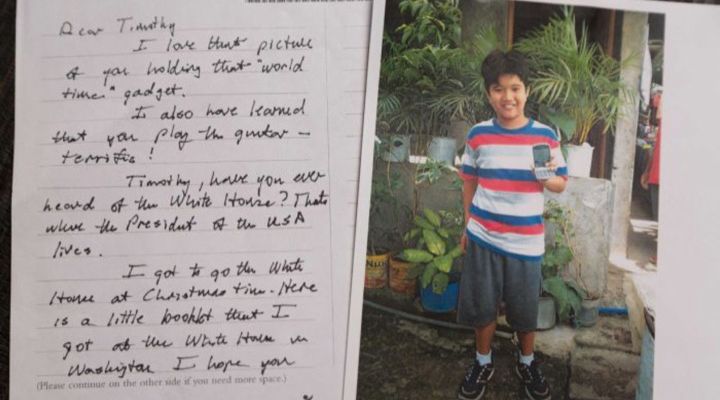 Dear Timothy
I love that picture
of you holding that "world
time" gadget.
I also have learned
that you play the guitar –
terrific!
Timothy, have you ever
heard of the White House? Thats
where the President of the USA
lives.
I got to go the White
House at Christmas time. Here
is a little booklet that I
got at the White House in
Washington I hope you
(Please continue on the other side if you need more space.)